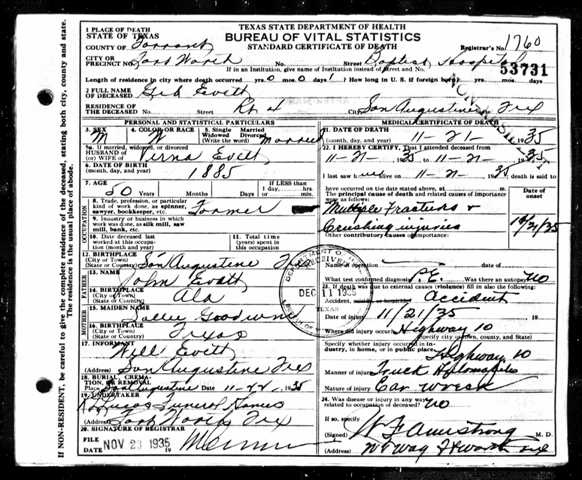 TEXAS STATE DEPARTMENT OF HEALTH
BUREAU OF VITAL STATISTICS
STANDARD CERTIFICATE OF DEATH
1 PLACE OF DEATH
STATE OF TEXAS
COUNTY OF Tarrant
CITY OR PRECINCT NO. Fort Worth
Baptist Hospital
Registrar's No. 1760
53731
If in an Institution, give name of Institution instead of Street and No.
Length of residence in city where death occurred yrs. 0 mos. 0 days 1 How long in U. S. if foreign born? yrs. mos. days
2 FULL NAME OF DECEASED Evett
RESIDENCE OF THE DECEASED Street and No. Rt 4 City San Augustine, Tex
PERSONAL AND STATISTICAL PARTICULARS
3. SEX M
4. COLOR OR RACE W
5. Single Married Widowed Divorced (Write the word) Married
5a. If married, widowed, or divorced HUSBAND OF (or) WIFE OF Verna Evett
6. DATE OF BIRTH (month, day, and year) 1885
7. AGE 50 Years Months Days If LESS than 1 day, hrs. or min.
8. Trade, profession, or particular kind of work done, as spinner, sawyer, bookkeeper, etc. Farmer
9. Industry or business in which work was done, as silk mill, saw mill, bank, etc.
10. Date deceased last worked at this occupation (month and year)
11. Total time (years) spent in this occupation
12. BIRTHPLACE (City or Town) (State or County) San Augustine Tex
13. NAME John Evett
14. BIRTHPLACE (City or Town) (State or County) Ala
15. MAIDEN NAME Goodwin
16. BIRTHPLACE (City or Town) (State or County) Texas
17. INFORMANT Will Evett
San Augustine Tex
18. BURIAL, CREMATION, OR REMOVAL
Place San Augustine 11-22 1935
19. UNDERTAKER
Lucas Funeral Home
Fort Worth Tex
20. SIGNATURE OF REGISTRAR
FILE DATE NOV 23 1935
MEDICAL CERTIFICATE OF DEATH
21. DATE OF DEATH 11-21-35
22. I HEREBY CERTIFY, That I attended deceased from
11-21 1935 to 11-21-35
I last saw alive on 11-21 1935 death is said to
have occurred on the date stated above, at m.
The principal cause of death and related causes of importance were as follows:
Date of onset
Multiple Fractures &
Crushing injuries
Other contributory causes of importance:
DEPARTMENT OF HEALTH
RECEIVED
DEC 11 1935
TEXAS
Name of operation
What test confirmed diagnosis? P.E. Was there an autopsy? no
23. If death was due to external causes (violence) fill in also the following:
Accident, Accident
Date of injury 11/21/35 19
Where did injury occur? Highway 10
(Specify city or town, county, and State)
Highway 10
Manner of injury Truck Automobile
Nature of injury Car wreck
24. Was disease or injury in any way related to occupation of deceased? no
If so, specify
(Signed) Armstrong M. D.